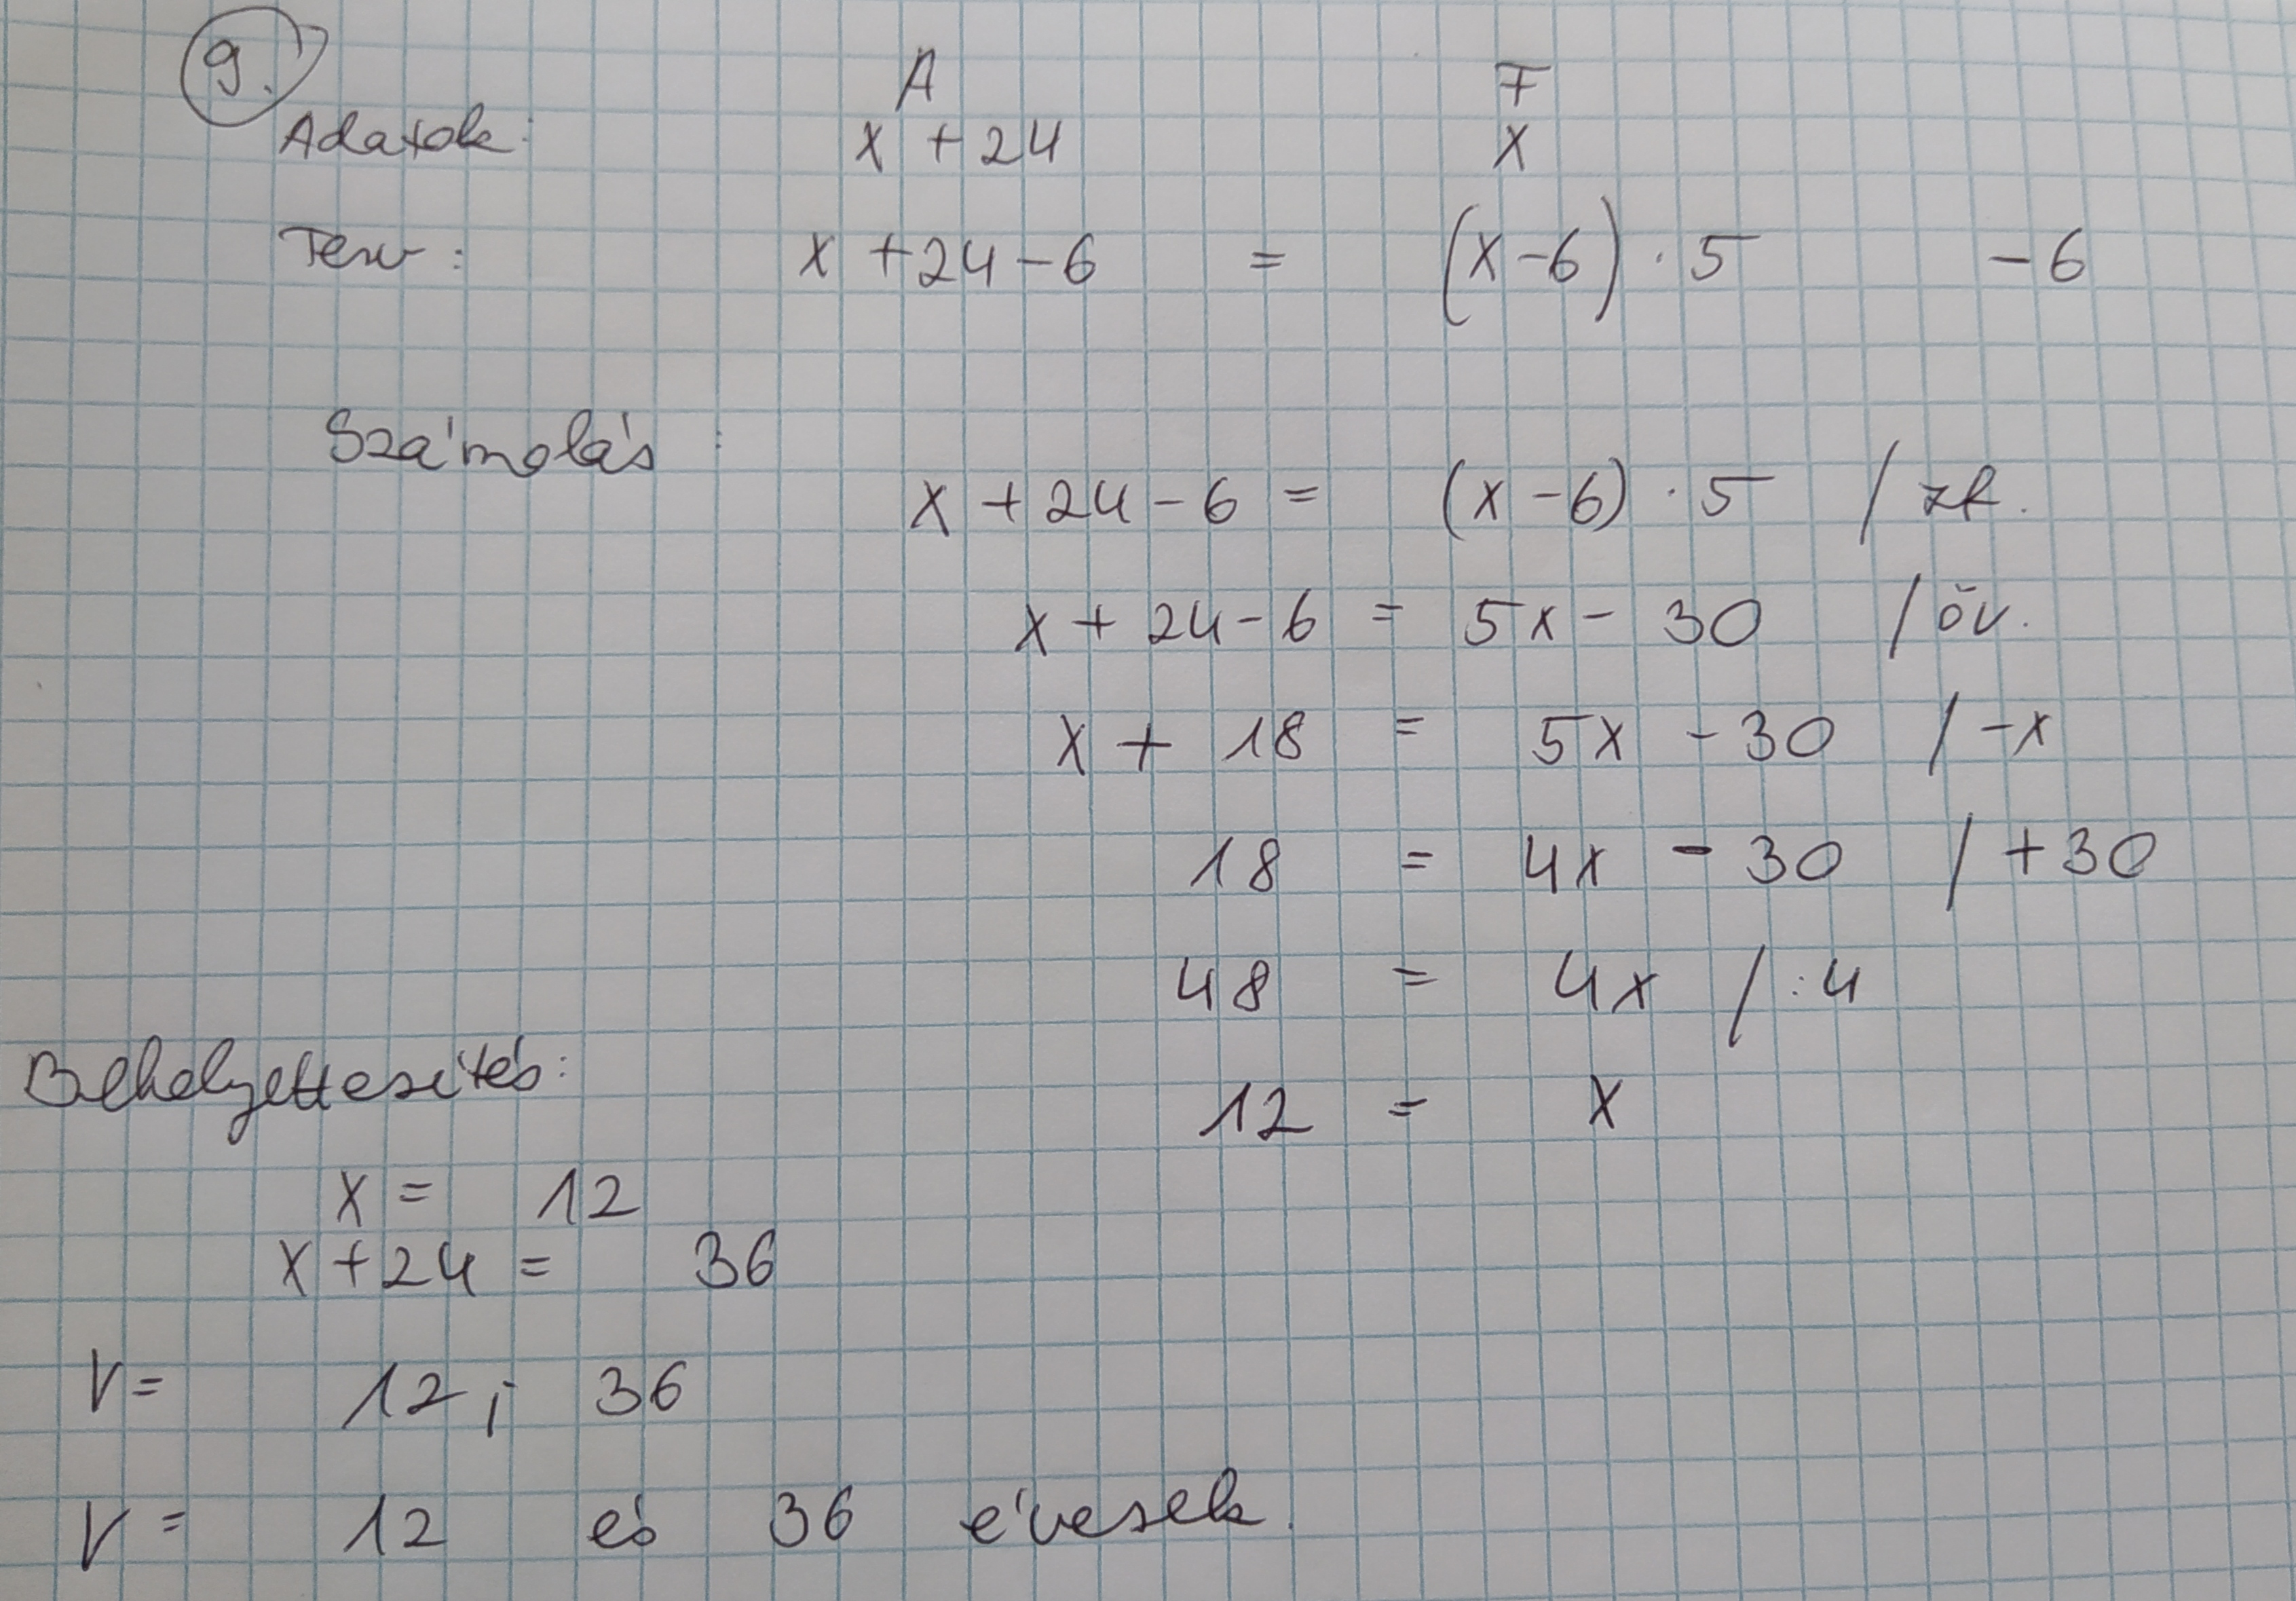 9.
A F
Adatok: x + 24 x
Terv: x + 24 - 6 = (x - 6) · 5 - 6
Számolás:
x + 24 - 6 = (x - 6) · 5 / zf.
x + 24 - 6 = 5x - 30 / öv.
x + 18 = 5x - 30 / -x
18 = 4x - 30 / +30
48 = 4x / :4
Behelyettesítés:
12 = x
x = 12
x + 24 = 36
V = 12; 36
V = 12 és 36 évesek.